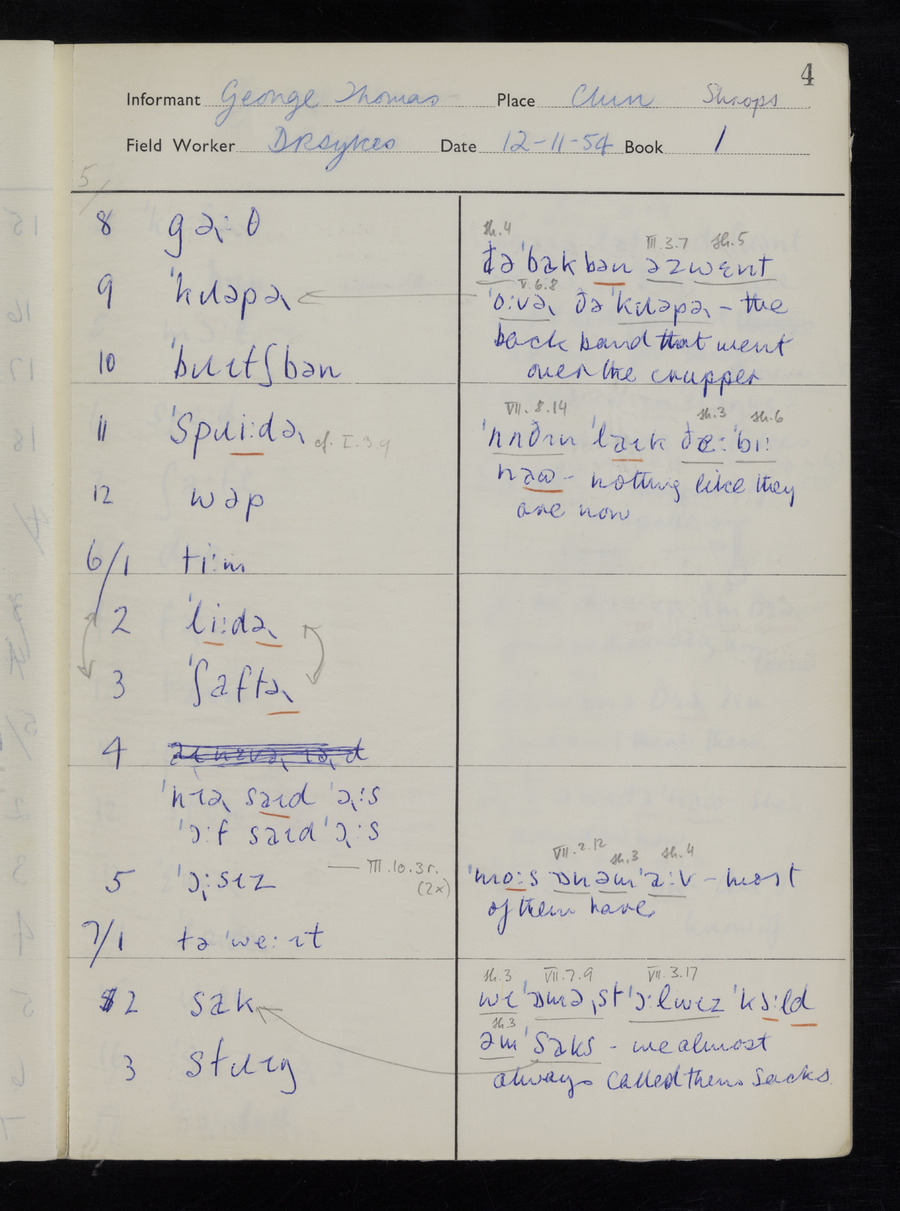 4
Informant George Thomas Place Clun Shrops
Field Worker DRSykes Date 12-11-54 Book 1
5/
8 gəɻ:θ
9 ˈkɹəpəɻ
10 ˈbɹɪtʃban
11 ˈspɹi:dəɻ cf. I.3.9
12 wɒp
6/1 ti:m
2 ˈli:dəɻ
3 ˈʃaftəɻ
4
ˈnɪəɻ saɪd ˈɔɻ:s
ˈɔ:f saɪd ˈɔɻ:s
5 ˈɔɻ:sɪz — III.10.3r. (2x)
7/1 tə ˈwe:ɪt
2 sak
3 stɹɪŋ
sh.4 III.3.7 sh.5
ðə ˈbak ban əz went
V.6.8
ˈo:vəɻ ðə ˈkɹəpəɻ - the
back band that went
over the crupper
VII.8.14 sh.3 sh.6
ˈnɒðɪn ˈlaɪk ðɛ: ˈbi:
naʊ - nothing like they
are now
VII.2.12 sh.3 sh.4
ˈmo:s ɒn əm ˈa:v - most
of them have
sh.3 VII.7.9 VII.3.17
wɪ ˈɔməˌst ˈɔ:lwɪz ˈkɔ:ld
sh.3
əm ˈsaks - we almost
always called them sacks